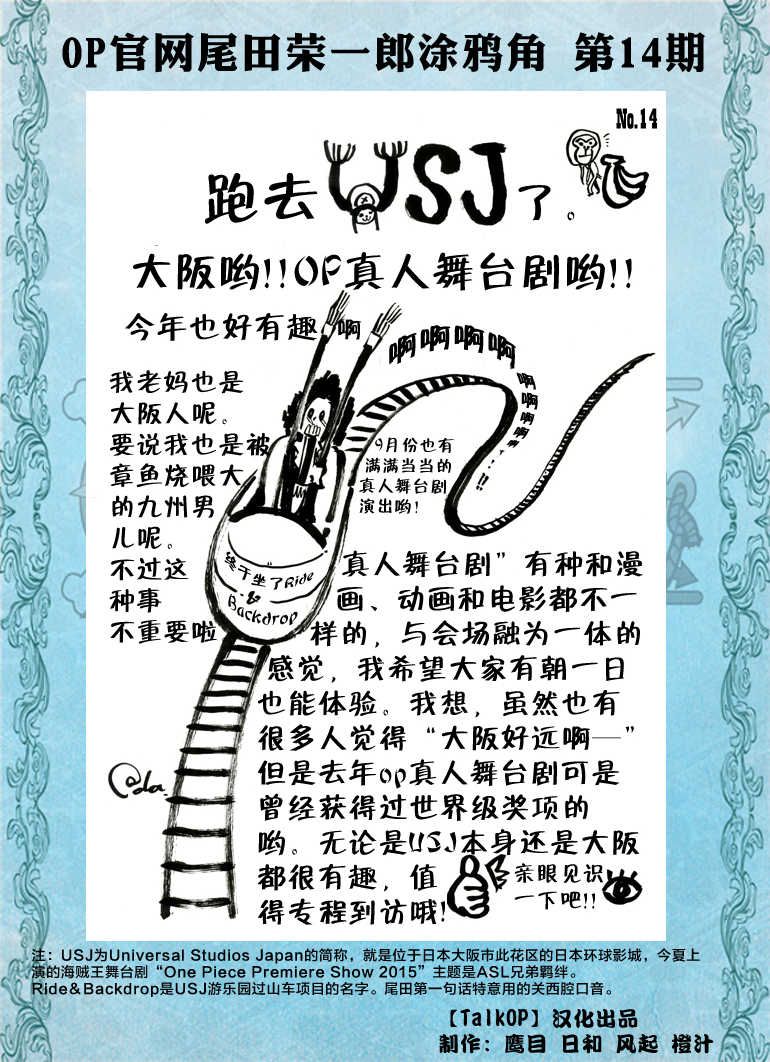 OP官网尾田荣一郎涂鸦角 第14期
No.14
跑去USJ了。
大阪哟!!OP真人舞台剧哟!!
今年也好有趣啊
啊啊啊啊
啊啊啊啊啊···!!
我老妈也是
大阪人呢。
要说我也是被
章鱼烧喂大
的九州男
儿呢。
不过这
种事
不重要啦
9月份也有
满满当当的
真人舞台剧
演出哟!
终于坐了Ride
&
Backdrop
真人舞台剧”有种和漫
画、动画和电影都不一
样的，与会场融为一体的
感觉，我希望大家有朝一日
也能体验。我想，虽然也有
很多人觉得“大阪好远啊—”
但是去年op真人舞台剧可是
曾经获得过世界级奖项的
哟。无论是USJ本身还是大阪
都很有趣，值
得专程到访哦!
亲眼见识
一下吧!!
Oda.
注：USJ为Universal Studios Japan的简称，就是位于日本大阪市此花区的日本环球影城，今夏上
演的海贼王舞台剧“One Piece Premiere Show 2015”主题是ASL兄弟羁绊。
Ride&Backdrop是USJ游乐园过山车项目的名字。尾田第一句话特意用的关西腔口音。
【TalkOP】汉化出品
制作：鹰目 日和 风起 橙汁